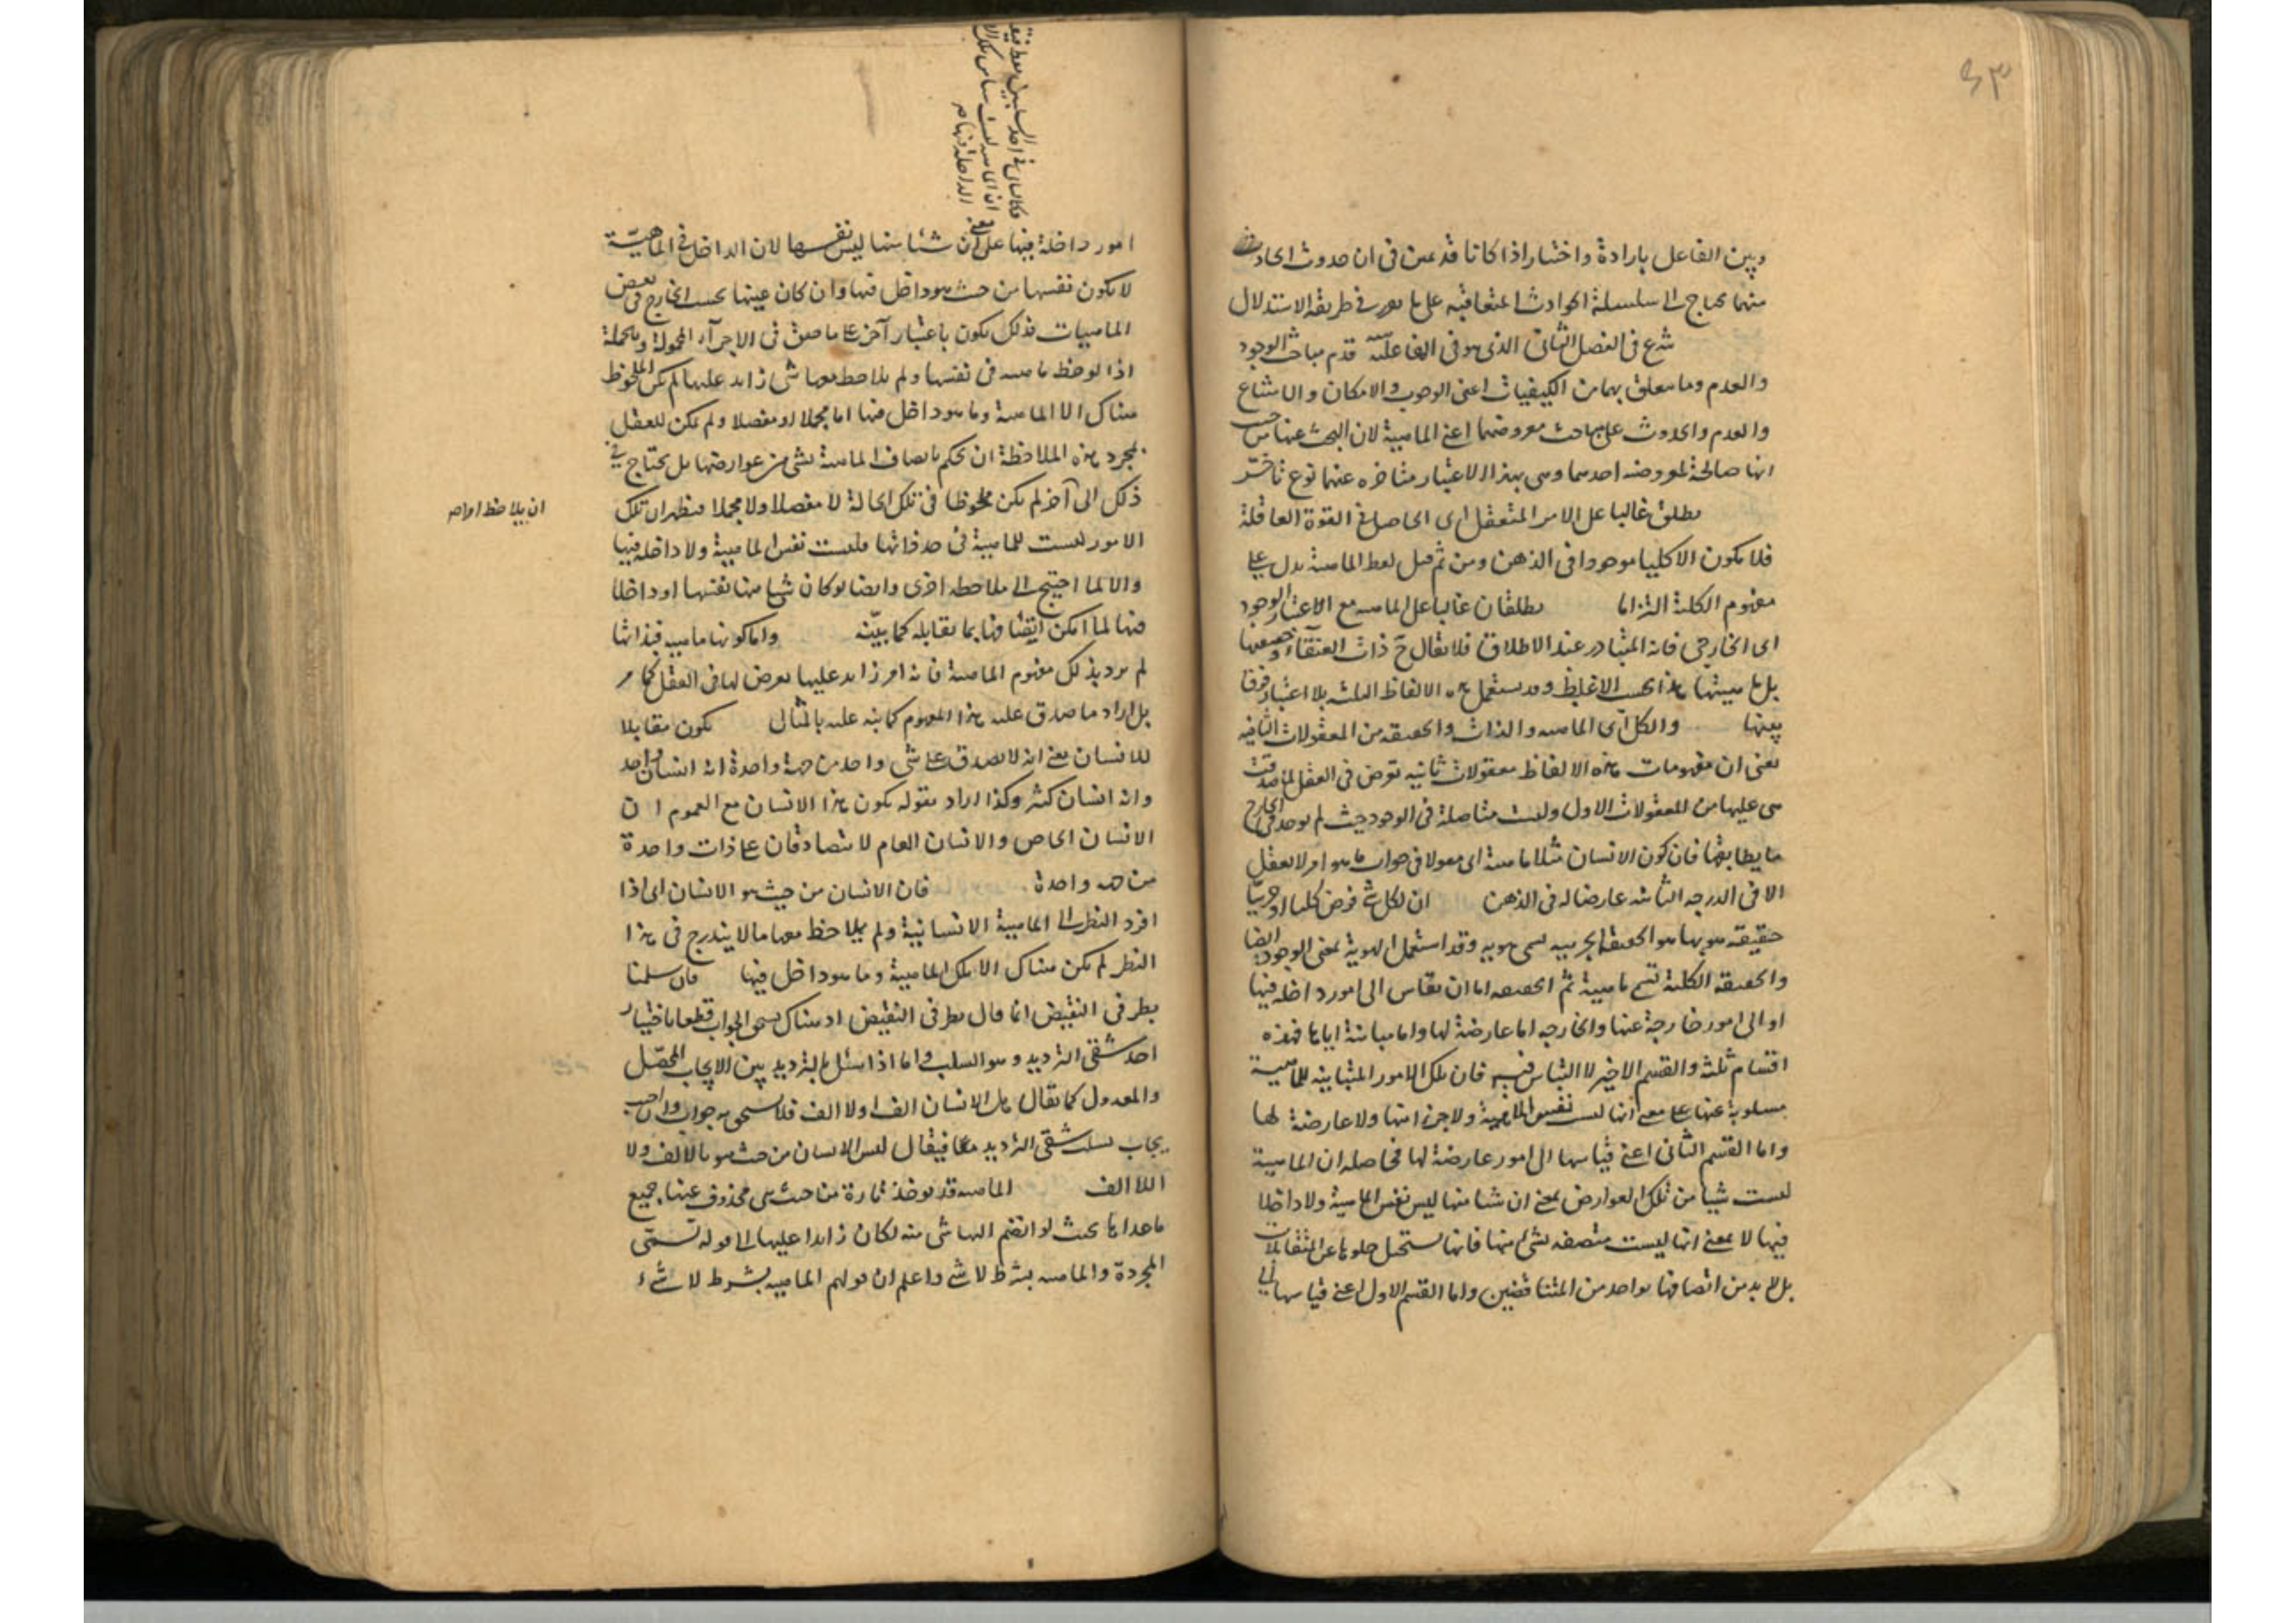 ٤٣
وبين الفاعل بارادة واختيار اذا كانا قديمين في ان حدوث الحادث
منهما يحتاج الى سلسلة الحوادث المتعاقبة على ما مر في طريقة الاستدلال
شرع في الفصل الثاني الذي هو في الفاعلية قدم مباحث الوجود
والعدم وما يتعلق بهما من الكيفيات اعنى الوجوب والامكان والامتناع
والعدم والحدوث على مباحث معروضهما اعنى الماهية لان البحث عنها من حيث
انها صالحة لمعروضية احدهما وهي بهذا الاعتبار متاخرة عنهما نوع تاخر
يطلق غالبا على الامر المتعقل اى الحاصل في القوة العاقلة
فلا يكون الا كليا موجودا في الذهن ومن ثم قيل لفظ الماهية يدل على
مفهوم الكلية التزاما يطلقان غالبا على الماهيه مع الاعتبار الوجود
اى الخارجى فانه المتبادر عند الاطلاق فلا يقال ح ذات العنقاء وحقيقتها
بل ماهيتها هذا بحسب الاغلب وقد يستعمل هذه الالفاظ الثلثه بلا اعتبار فرق
بينها والكل اى الماهيه والذات والحقيقه من المعقولات الثانيه
يعنى ان مفهومات هذه الالفاظ معقولات ثانيه تعرض في العقل لما صدقت
هى عليها من المعقولات الاول وليست متاصلة في الوجود حيث لم يوجد في الخارج
ما يطابقها فان كون الانسان مثلا ماهية اى مقولا في جواب ما هو امر لا يعقل
الا في الدرجه الثانيه عارضا له في الذهن ان لكل شئ فرض كليا او جزئيا
حقيقه هو بها هو الحقيقة الجزئيه تسمى هويه وقد استعمل الهوية بمعنى الوجود ايضا
والحقيقه الكلية تسمى ماهية ثم الحقيقه اما ان تقاس الى امور داخله فيها
او الى امور خارجة عنها والخارجه اما عارضة لها واما مباينة اياها فهذه
اقسام ثلثة والقسم الاخير لا التباس فيه فان تلك الامور المتباينه للماهية
مسلوبة عنها على معنى انها ليست نفس الماهية ولا جزءا منها ولا عارضة لها
واما القسم الثانى اعنى قياسها الى امور عارضة لها فحاصله ان الماهية
ليست شيئا من تلك العوارض بمعنى ان شيئا منها ليس نفس الماهية ولا داخلا
فيها لا بمعنى انها ليست متصفه بشئ منها فانها يستحيل خلوها عن المتقابلات
بل لا بد من اتصافها بواحد من المتناقضين واما القسم الاول اعنى قياسها الى
امور داخلة فيها على معنى ان شيئا منها ليس نفسها لان الداخل في الماهية
لا يكون نفسها من حيث هو داخل فيها وان كان عينها بحسب الخارج في بعض
الماهيات فذلك يكون باعتبار آخر على ما حقق في الاجزآء المحمولة وبالجملة
اذا لوحظ ماهيه في نفسها ولم يلاحظ معها شئ زايد عليها لم يكن الملحوظ
هناك الا الماهية وما هو داخل فيها اما مجملا او مفصلا ولم يكن للعقل
بمجرد هذه الملاحظة ان يحكم باتصاف الماهية بشئ من عوارضها بل يحتاج في
ذلك الى آخر لم يكن ملحوظا في تلك الحالة لا مفصلا ولا مجملا فيظهر ان تلك
ان يلاحظ امرا
الامور ليست للماهية في حد ذاتها فليست نفس الماهية ولا داخلة فيها
والا لما احتيج الى ملاحظه اخرى وايضا لو كان شئ منها نفسها او داخلا
فيها لما امكن اتصافها بما يقابله كما بينه واما كونها ماهيه فبذاتها
لم يرد بذلك مفهوم الماهية فانه امر زايد عليها يعرض لها في العقل كما مر
بل اراد ما صدق عليه هذا المفهوم كما نبه عليه بالمثال يكون مقابلا
للانسان بمعنى انه لا يصدق على شئ واحد من جهة واحدة انه انسان واحد
وانه انسان كثير وكذا اراد بقوله يكون هذا الانسان مع العموم ان
الانسان الخاص والانسان العام لا يتصادقان على ذات واحدة
من جهه واحدة فان الانسان من حيث هو الانسان اى اذا
افرد النظر الى الماهية الانسانية ولم يلاحظ معها ما لا يندرج في هذا
النظر لم يكن هناك الا تلك الماهية وما هو داخل فيها فان سلمنا
بطرفى النقيض انما قال بطرفى النقيض اذ هناك يستحق الجواب قطعا باختيار
احد شقى الترديد وهو السلب واما اذا سئل بالترديد بين الايجاب المحصل
والمعدول كما يقال هل الانسان الف او لا الف فلا يستحق جوابا وان اجيب
يجاب بسلب شقى الترديد معا فيقال ليس الانسان من حيث هو بالالف ولا
اللا الف الماهيه قد توخذ تارة من حيث هى محذوف عنها جميع
ما عداها بحيث لو انضم اليها شئ منه لكان زايدا عليها الى قوله تسمى
المجردة والماهيه بشرط لا شئ واعلم ان قولهم الماهيه بشرط لا شئ